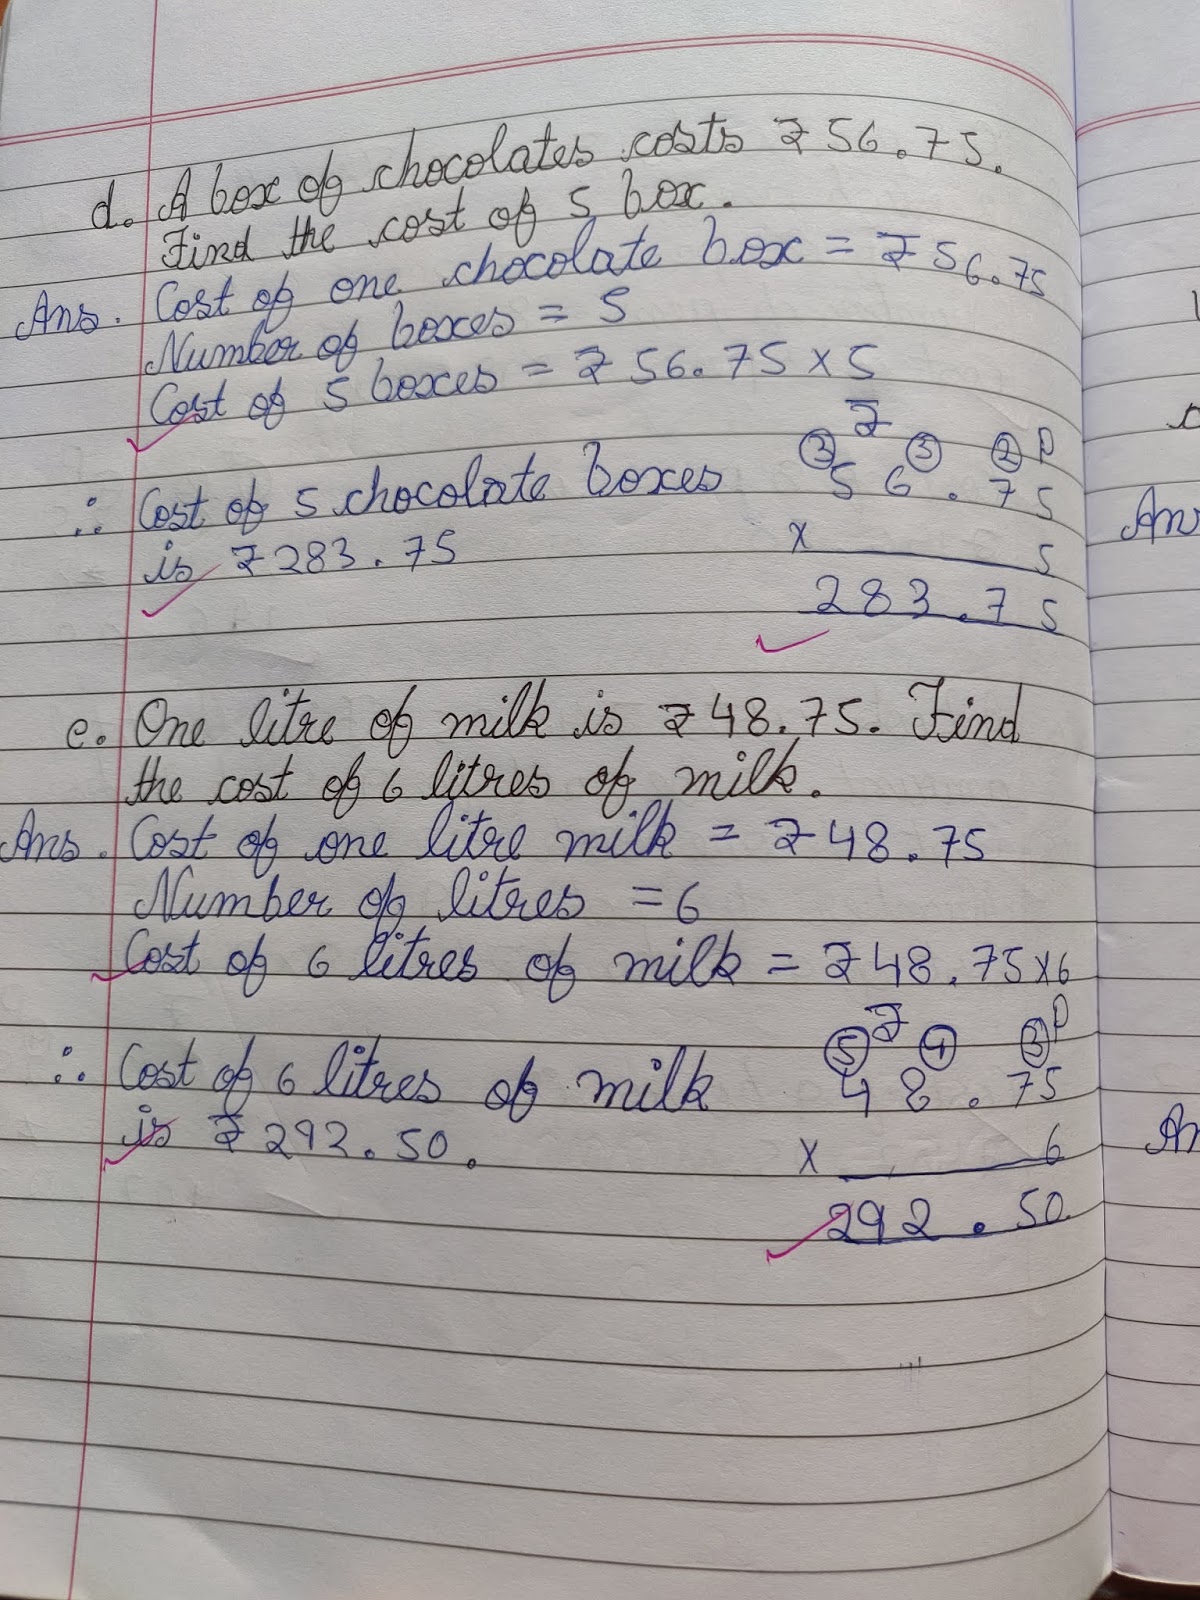 d. A box of chocolates costs ₹ 56.75.
Find the cost of 5 box.
Ans. Cost of one chocolate box = ₹ 56.75
Number of boxes = 5
Cost of 5 boxes = ₹ 56.75 x 5
₹ P
③ ③ ②
56.75
x 5
283.75
∴ Cost of 5 chocolate boxes
is ₹ 283.75
e. One litre of milk is ₹ 48.75. Find
the cost of 6 litres of milk.
Ans. Cost of one litre milk = ₹ 48.75
Number of litres = 6
Cost of 6 litres of milk = ₹ 48.75 x 6
₹ P
⑤ ④ ③
48.75
x 6
292.50
∴ Cost of 6 litres of milk
is ₹ 292.50.
Ans
An